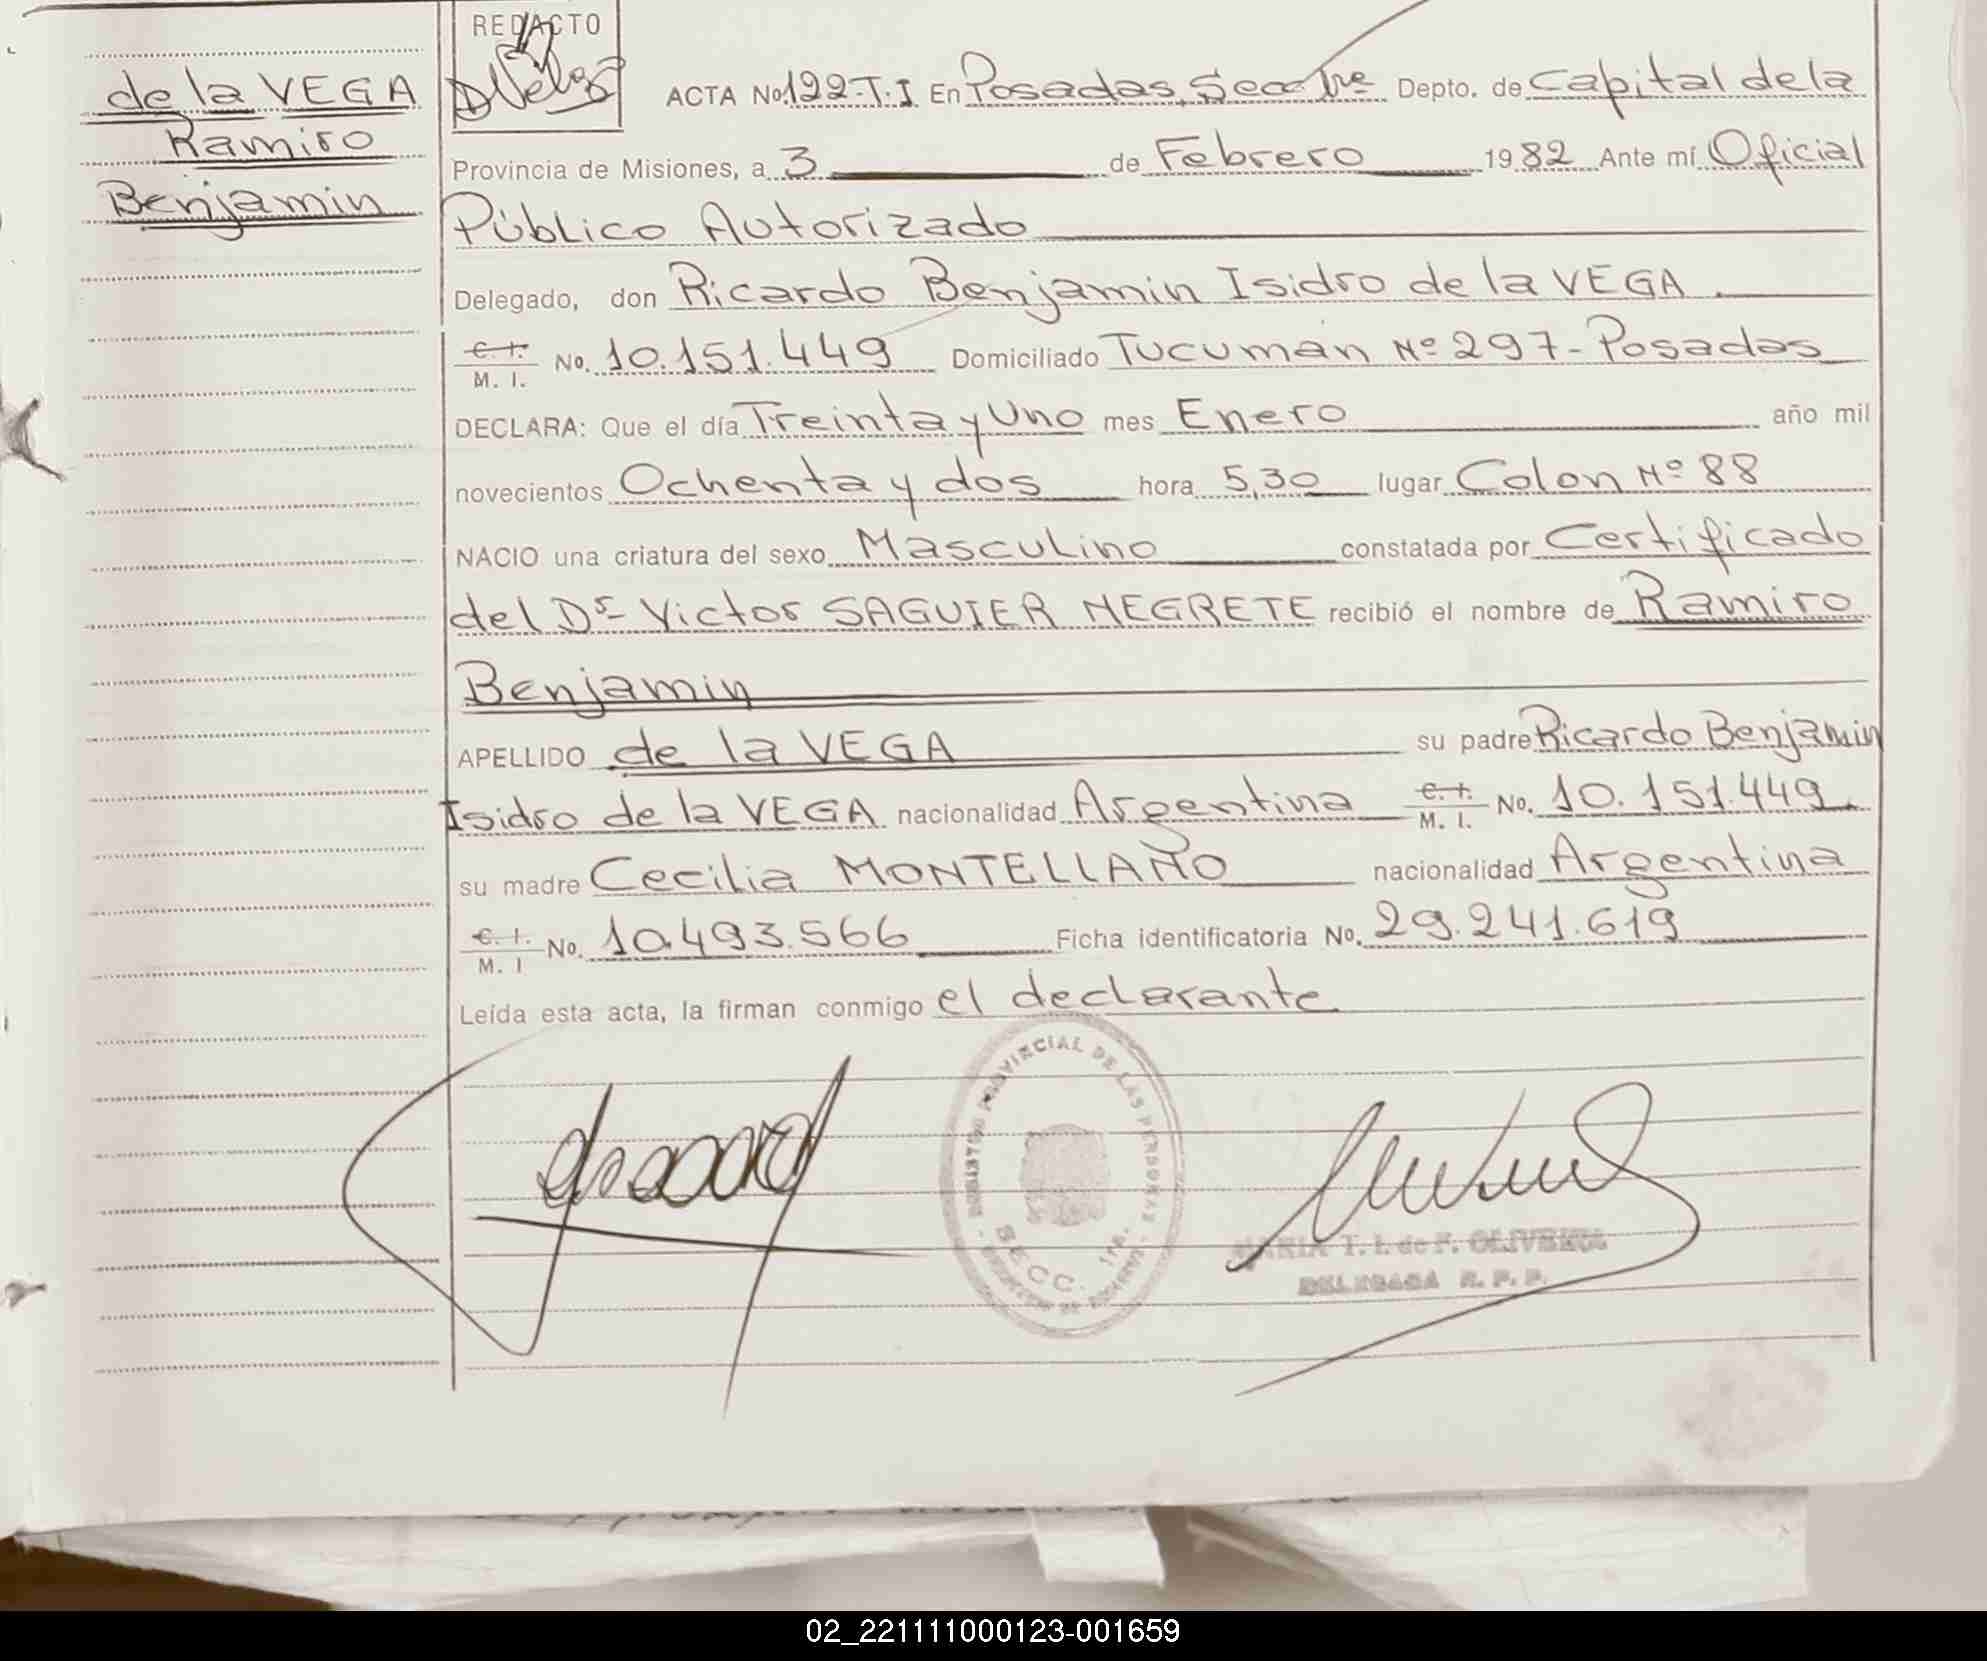 de la VEGA
Ramiro
Benjamin
REDACTO
ACTA No. 122-T.I En Posadas, Secc 1ra Depto. de Capital de la
Provincia de Misiones, a 3 de Febrero 1982 Ante mí Oficial
Público Autorizado
Delegado, don Ricardo Benjamin Isidro de la VEGA
C. I. / M. I. No. 10.151.449 Domiciliado Tucumán Nº 297 - Posadas
DECLARA: Que el día Treinta y Uno mes Enero año mil
novecientos Ochenta y dos hora 5,30 lugar Colon Nº 88
NACIO una criatura del sexo Masculino constatada por Certificado
del Dr Victor SAGUIER NEGRETE recibió el nombre de Ramiro
Benjamin
APELLIDO de la VEGA su padre Ricardo Benjamin
Isidro de la VEGA nacionalidad Argentina C. I. / M. I. No. 10.151.449
su madre Cecilia MONTELLANO nacionalidad Argentina
C. I. / M. I No. 10.493.566 Ficha identificatoria No. 29.241.619
Leída esta acta, la firman conmigo el declarante
REGISTRO PROVINCIAL DE LAS PERSONAS
SECC. 1ra.
MARIA T. I. de F. OLIVEIRA
DELEGADA R. P. P.
02_221111000123-001659